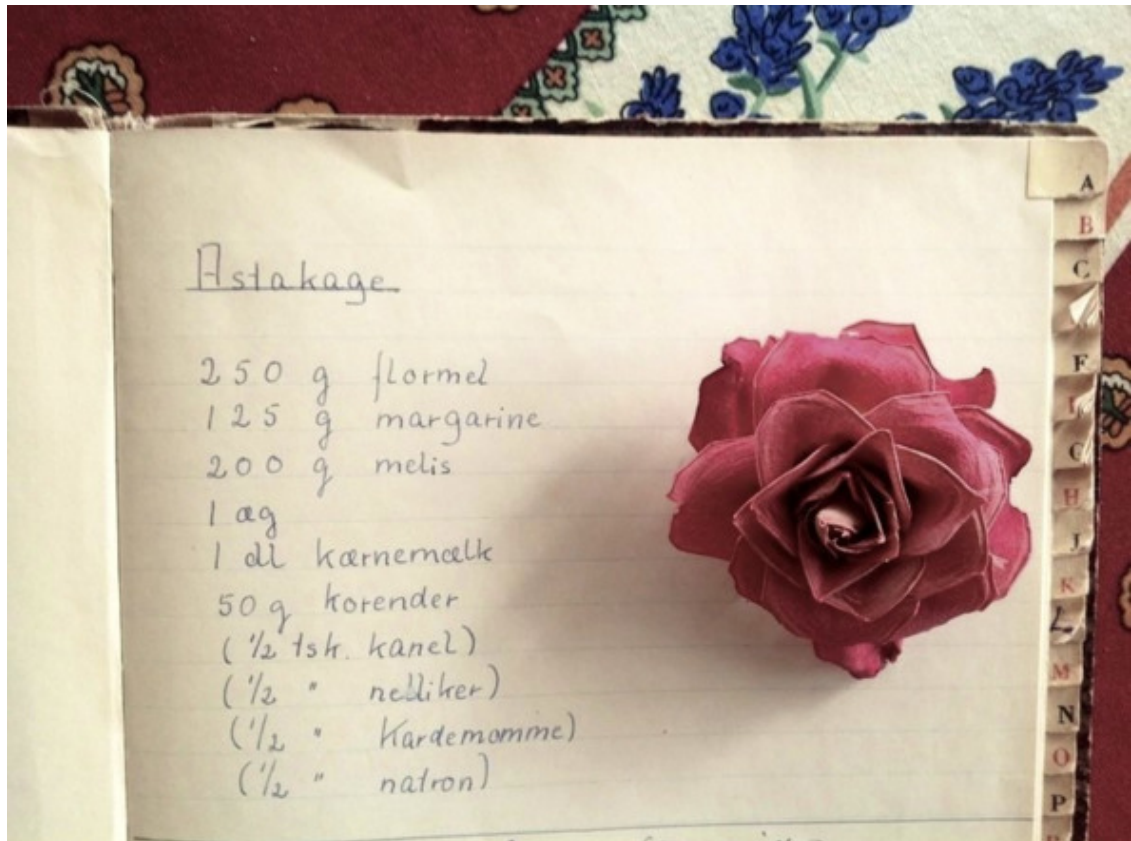 Astakage
250 g flormel
125 g margarine
200 g melis
1 æg
1 dl kærnemælk
50 g korender
(1/2 tsk. kanel)
(1/2 " nelliker)
(1/2 " Kardemomme)
(1/2 " natron)
A
B
C
F
G
H
J
K
L
M
N
O
P